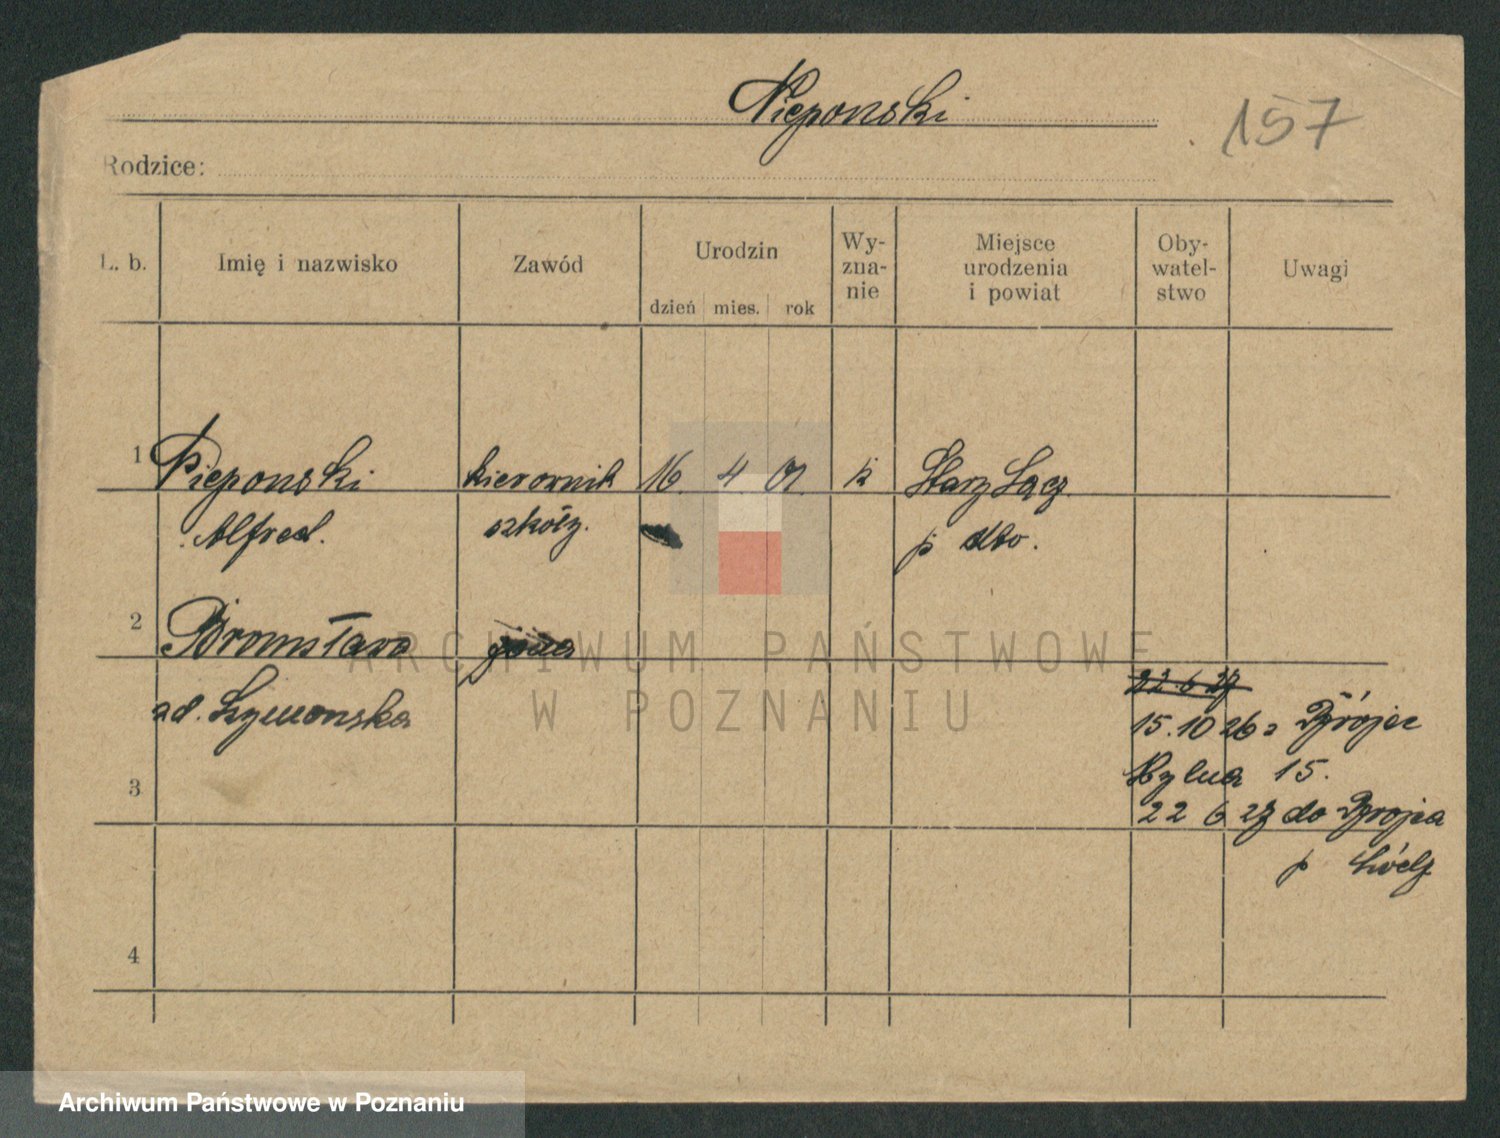 Pieponski
157
Rodzice:
L. b. Imię i nazwisko Zawód Urodzin dzień mies. rok Wy-zna-nie Miejsce urodzenia i powiat Oby-watel-stwo Uwagi
1 Pieponski kierownik 16. 4. 01. k Stary Sącz
Alfred. szkoły. p dto.
2 Bronisława
ad. Szymonska
22 6 27
15.10 26 z Brójec
15.
3
22 6 27 do Brojca
p Łódź
4
ARCHIWUM PAŃSTWOWE
W POZNANIU
Archiwum Państwowe w Poznaniu